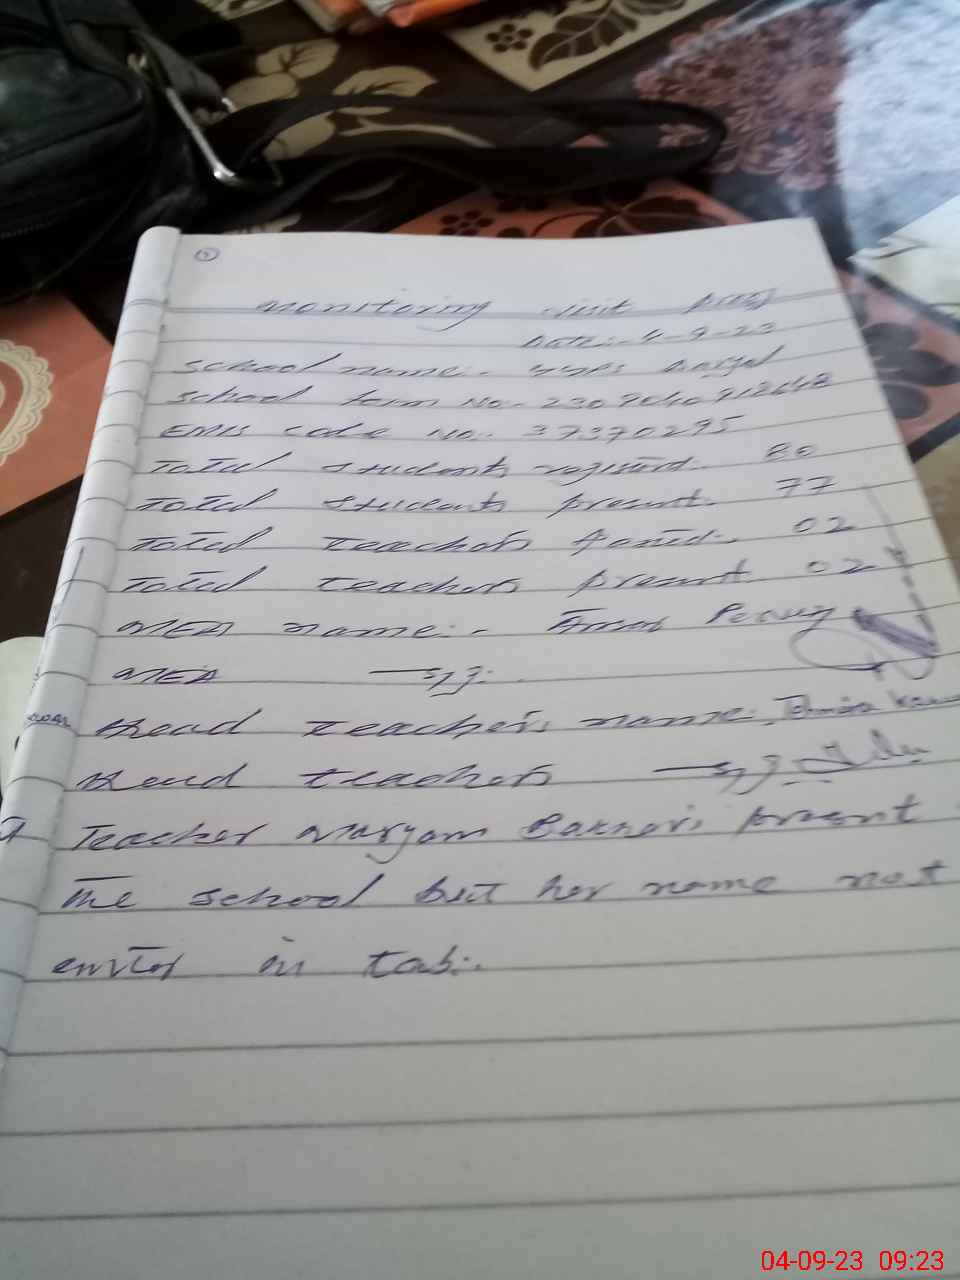 monitoring visit
Date:- 4-9-23
School name:- GGPS
School form No:- 2309040912648
EMIS code No:- 37370295
Total students registerd:- 80
Total students present:- 77
Total teachers Posted:- 02
Total teachers present 02
MEA name:-
MEA sig:-
Head teachers name:-
Head teachers sig:-
Teacher Maryam present
The school but her name not
enter in tab:-
04-09-23 09:23